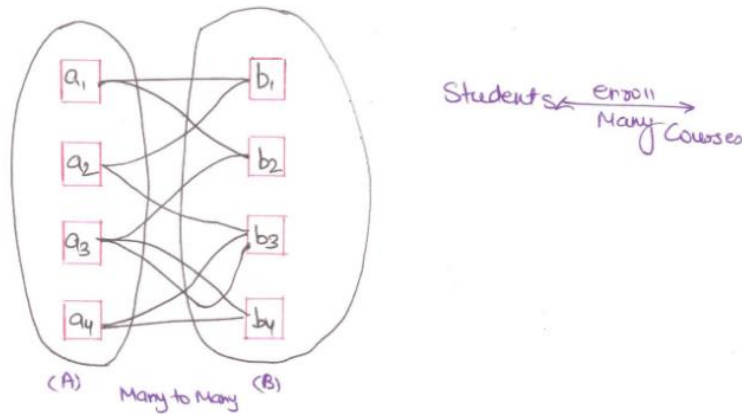 a1
b1
a2
b2
a3
b3
a4
b4
(A)
Many to Many
(B)
Students
enroll
Many Courses